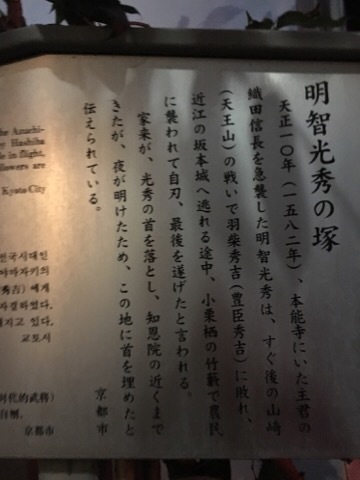 明智光秀の塚
天正一〇年（一五八二年）、本能寺にいた主君の
織田信長を急襲した明智光秀は、すぐ後の山崎
（天王山）の戦いで羽柴秀吉（豊臣秀吉）に敗れ、
近江の坂本城へ逃れる途中、小栗栖の竹藪で農民
に襲われて自刃、最後を遂げたと言われる。
家来が、光秀の首を落とし、知恩院の近くまで
きたが、夜が明けたため、この地に首を埋めたと
伝えられている。
京都市
he Azuchi-
y Hashiba
de in flight.
lowers are
Kyoto City
전국시대인
야마자키의
秀吉) 에게
자결하였다.
해지고 있다.
교토시
时代的武将)
自刎。
京都市